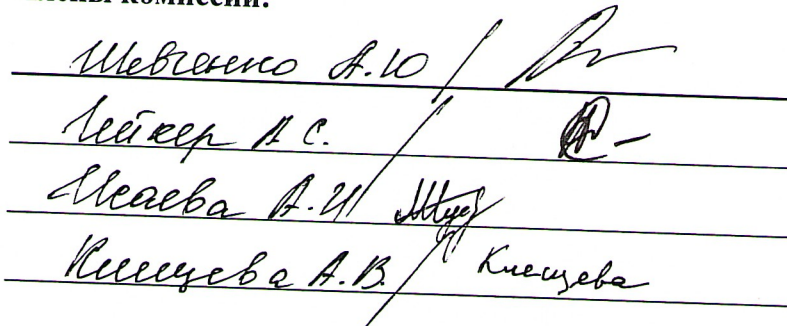 члены комиссии:
Шевченко А.Ю /
Чейкер А С. /
Исаева А.И /
Клещева А.В. / Клещева